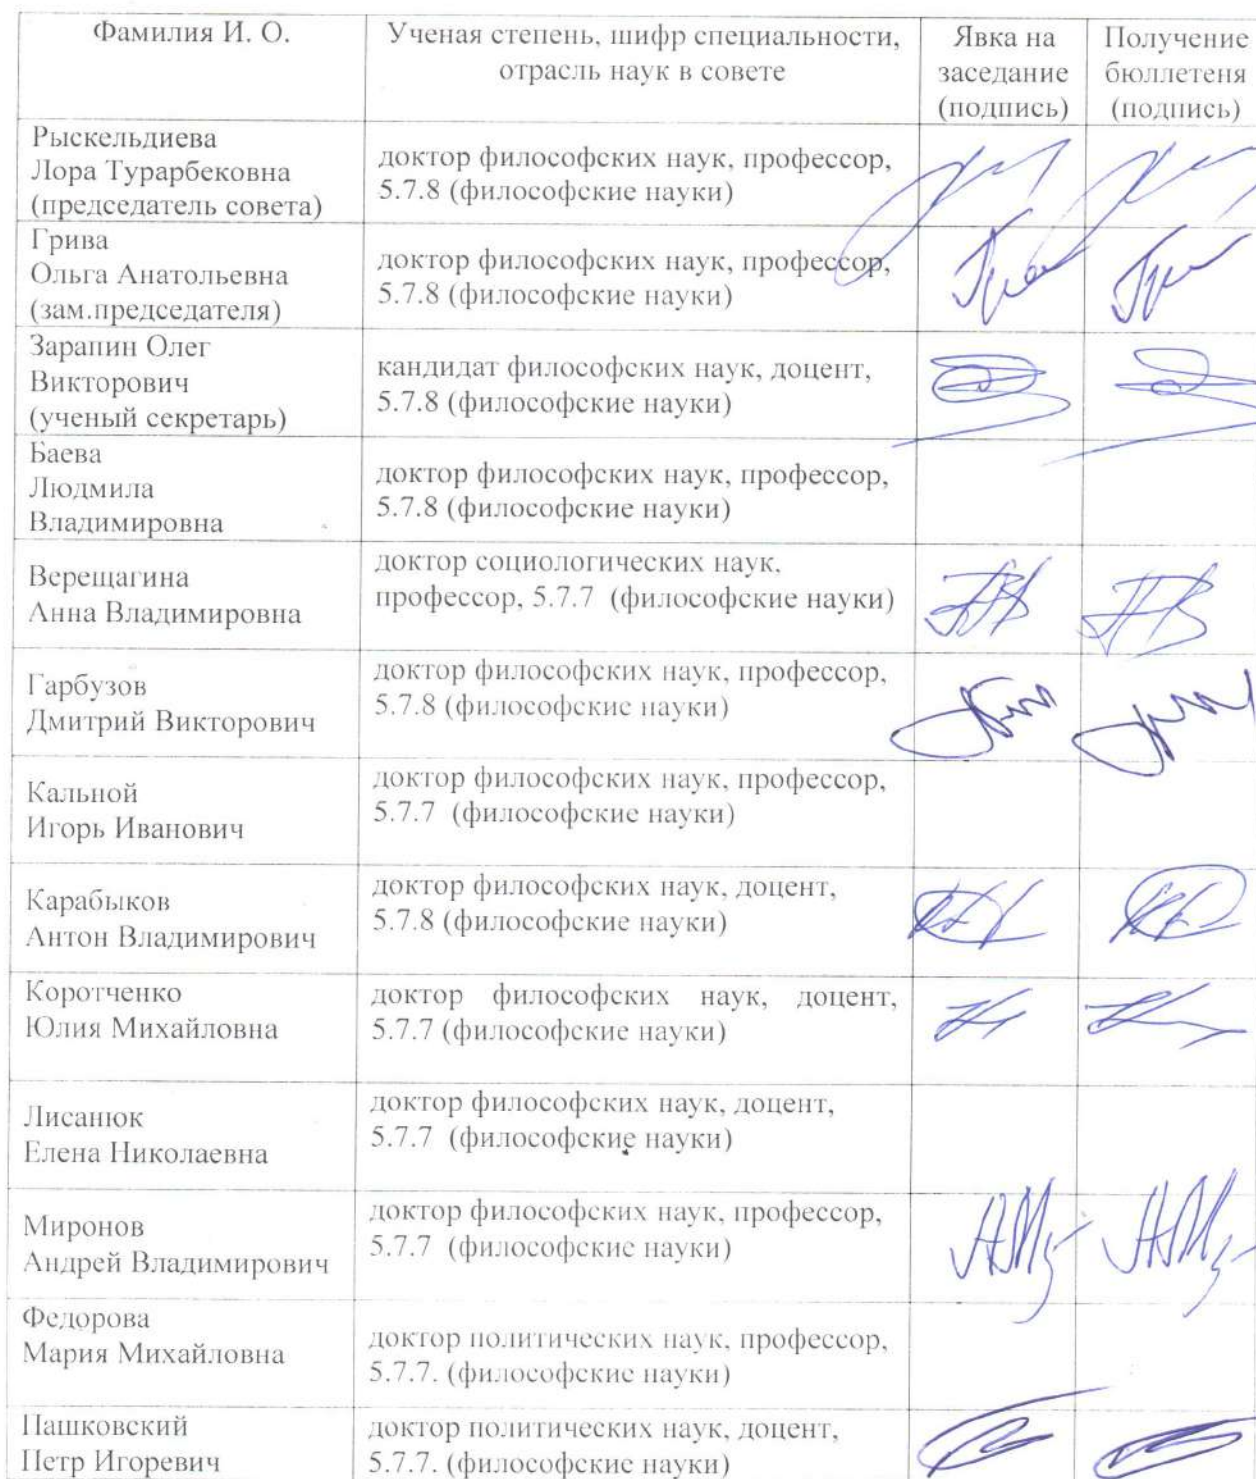 Фамилия И. О.
Ученая степень, шифр специальности,
отрасль наук в совете
Явка на
заседание
(подпись)
Получение
бюллетеня
(подпись)
Рыскельдиева
Лора Турарбековна
(председатель совета)
доктор философских наук, профессор,
5.7.8 (философские науки)
Грива
Ольга Анатольевна
(зам.председателя)
доктор философских наук, профессор,
5.7.8 (философские науки)
Зарапин Олег
Викторович
(ученый секретарь)
кандидат философских наук, доцент,
5.7.8 (философские науки)
Баева
Людмила
Владимировна
доктор философских наук, профессор,
5.7.8 (философские науки)
Верещагина
Анна Владимировна
доктор социологических наук,
профессор, 5.7.7 (философские науки)
Гарбузов
Дмитрий Викторович
доктор философских наук, профессор,
5.7.8 (философские науки)
Кальной
Игорь Иванович
доктор философских наук, профессор,
5.7.7 (философские науки)
Карабыков
Антон Владимирович
доктор философских наук, доцент,
5.7.8 (философские науки)
Коротченко
Юлия Михайловна
доктор философских наук, доцент,
5.7.7 (философские науки)
Лисанюк
Елена Николаевна
доктор философских наук, доцент,
5.7.7 (философские науки)
Миронов
Андрей Владимирович
доктор философских наук, профессор,
5.7.7 (философские науки)
Федорова
Мария Михайловна
доктор политических наук, профессор,
5.7.7. (философские науки)
Пашковский
Петр Игоревич
доктор политических наук, доцент,
5.7.7. (философские науки)